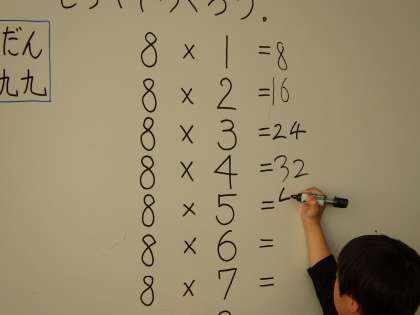 だん
九九
8 × 1 = 8
8 × 2 = 16
8 × 3 = 24
8 × 4 = 32
8 × 5 =
8 × 6 =
8 × 7 =